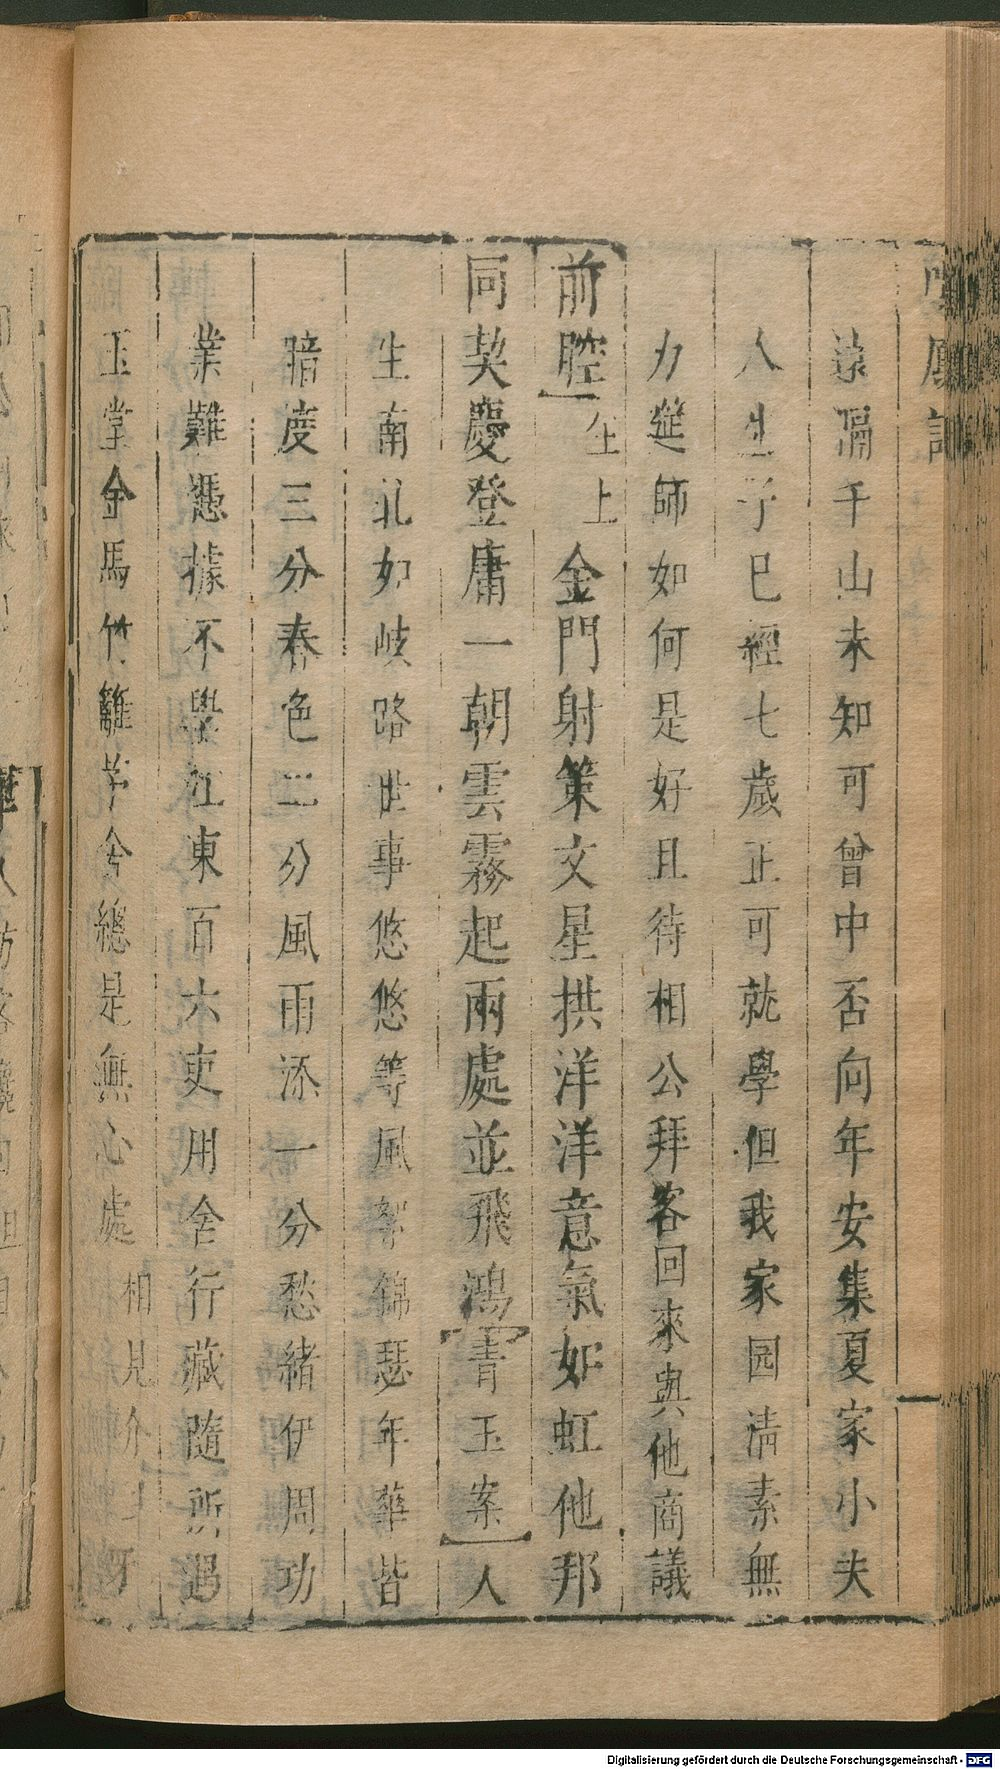 遠隔千山未知可曾中否向年安集夏家小夫
人生子巳經七歲正可就學但我家园清素無
力進師如何是好且待相公拜客回來與他商議
前腔生上金門射策文星拱洋洋意氣如虹他邦
同契慶登庸一朝雲霧起兩處並飛鴻青玉案人
生南北如岐路世事悠悠等風絮錦瑟年華皆
暗度三分春色二分風雨添一分愁緒伊周功
業難憑據不學江東百六吏用舍行藏隨所遇
玉堂金馬竹籬茅舍總是無心處相見介
Digitalisierung gefördert durch die Deutsche Forschungsgemeinschaft - DFG